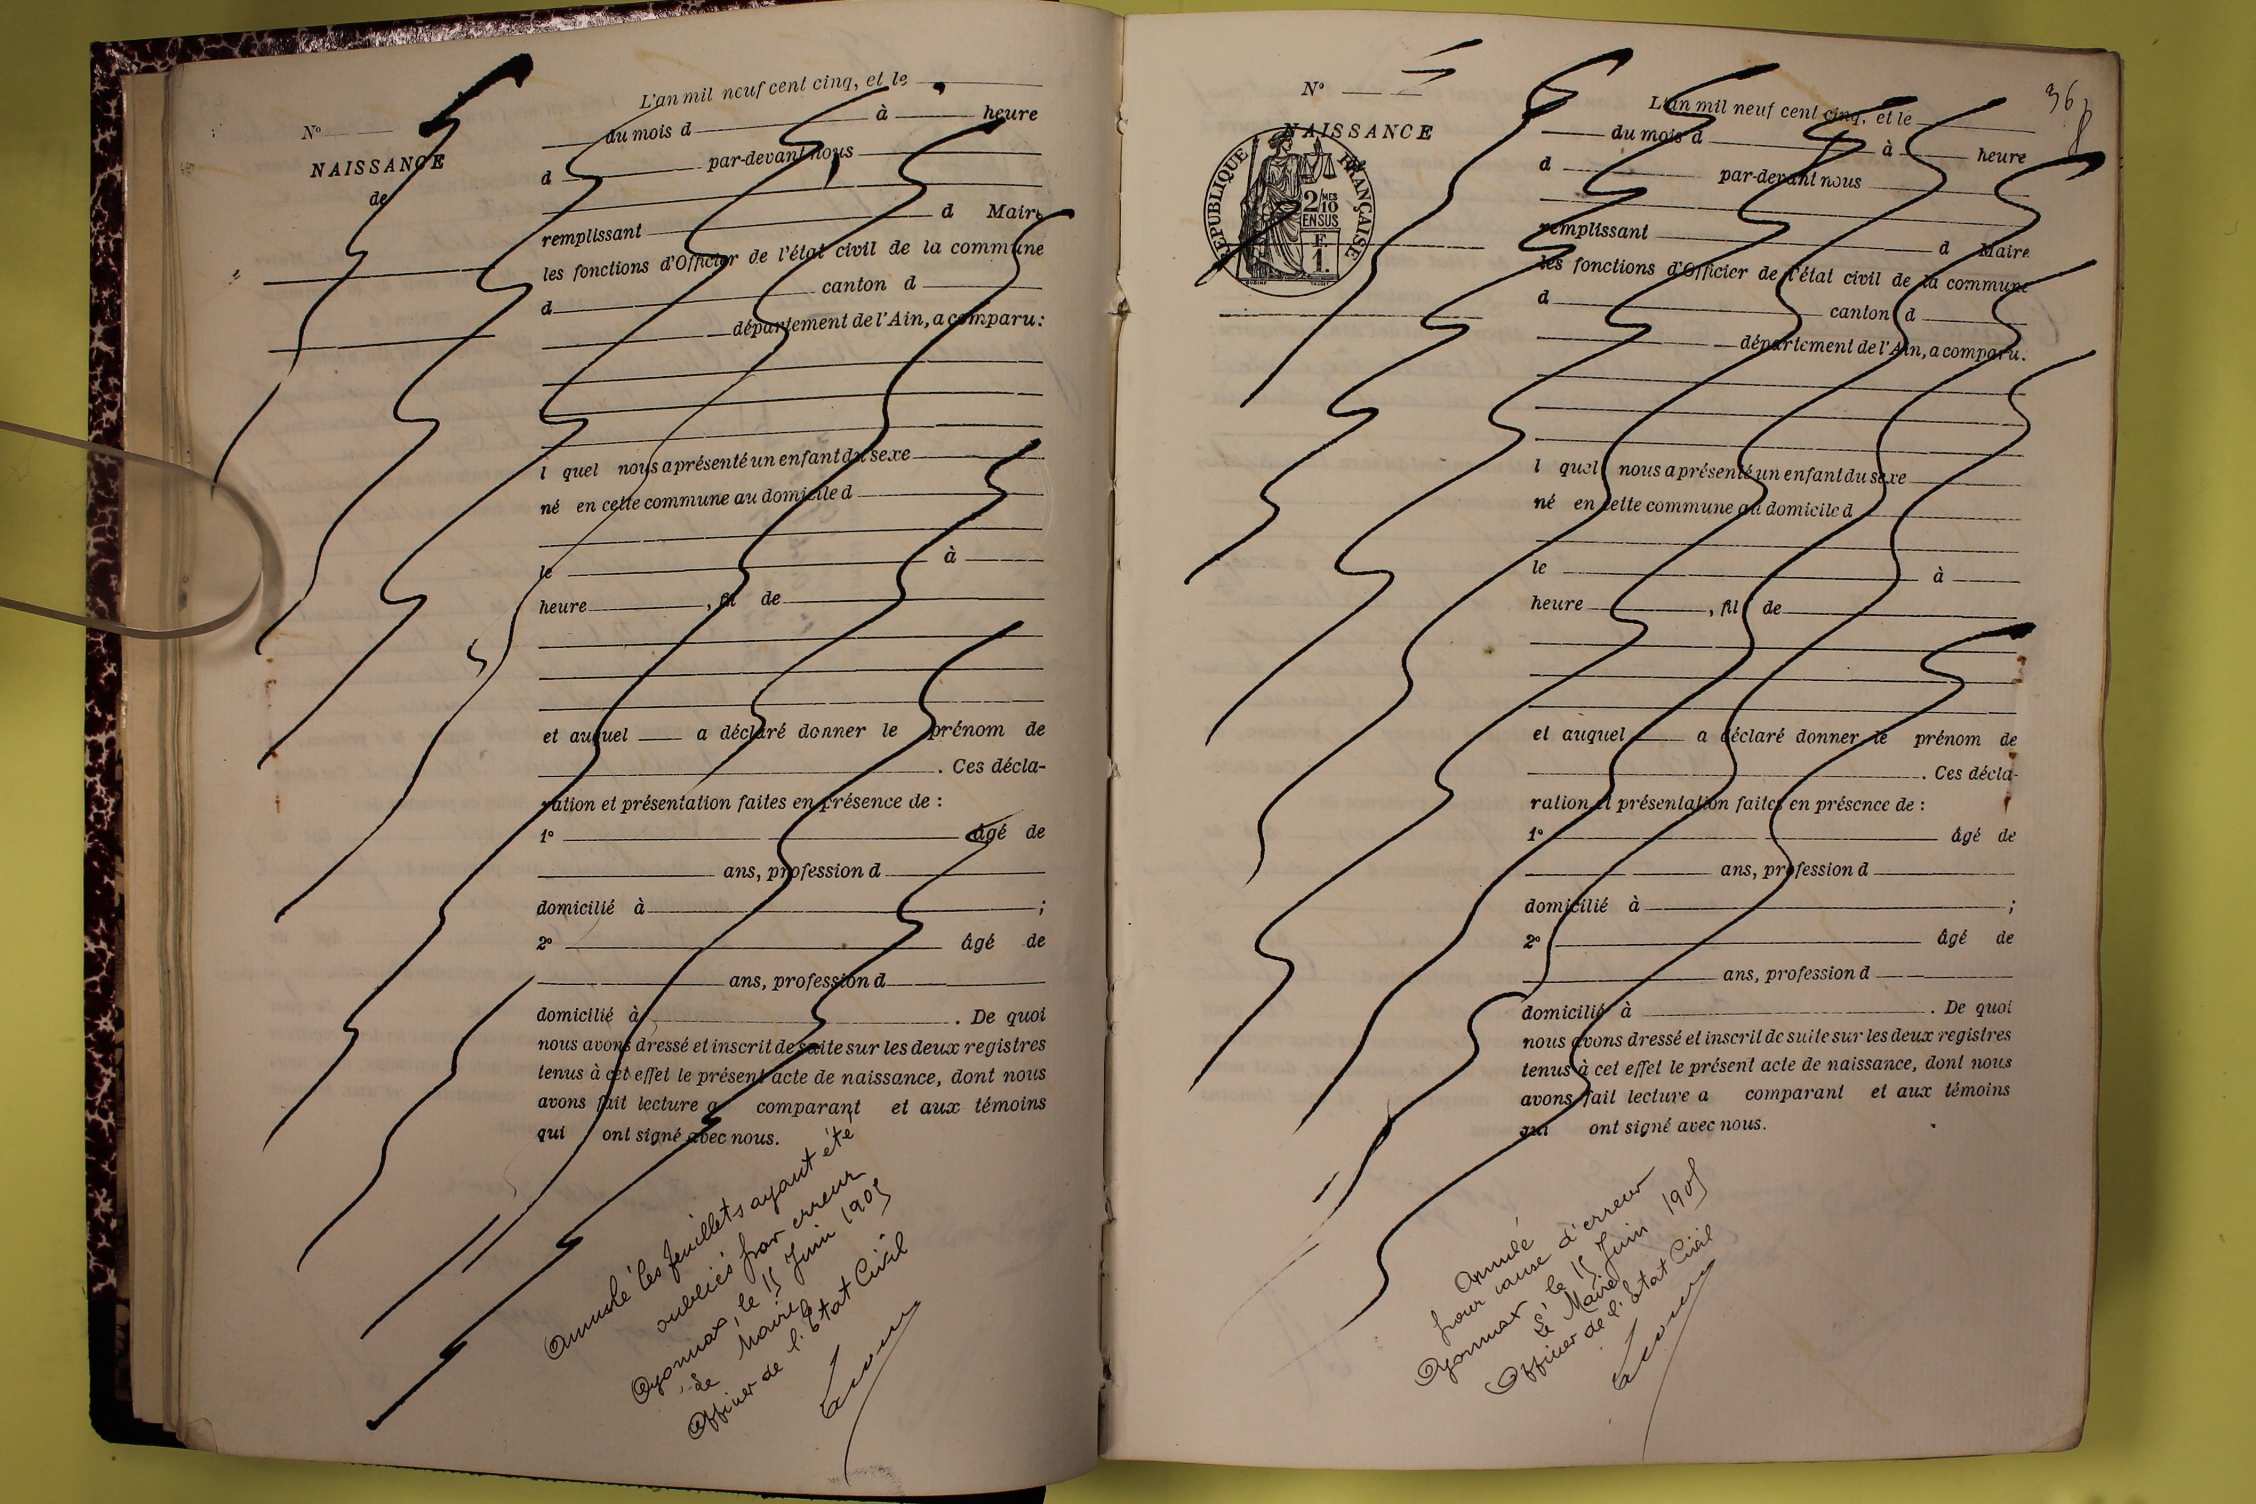 N°
NAISSANCE
de
L'an mil neuf cent cinq, et le
du mois d à heure
d par-devant nous
d Maire
remplissant
les fonctions d'Officier de l'état civil de la commune
d canton d
département de l'Ain, a comparu:
l quel nous a présenté un enfant du sexe
né en cette commune au domicile d
le à
heure , fil de
et auquel a déclaré donner le prénom de
. Ces décla-
ration et présentation faites en présence de :
1° âgé de
ans, profession d
domicilié à ;
2° âgé de
ans, profession d
domicilié à . De quoi
nous avons dressé et inscrit de suite sur les deux registres
tenus à cet effet le présent acte de naissance, dont nous
avons fait lecture a comparant et aux témoins
qui ont signé avec nous.
les feuillets ayant été
oubliés par erreur
Oyonnax, le 15 Juin 1905
Le Maire
Officier de l'Etat Civil
36
N°
NAISSANCE
RÉPUBLIQUE FRANÇAISE
2/MES
10
EN SUS
F.
1.
L'an mil neuf cent cinq, et le
du mois d à heure
d par-devant nous
remplissant d Maire
les fonctions d'Officier de l'état civil de la commune
d canton d
département de l'Ain, a comparu.
l quel nous a présenté un enfant du sexe
né en cette commune au domicile d
le à
heure , fil de
et auquel a déclaré donner le prénom de
. Ces décla-
ration et présentation faites en présence de :
1° âgé de
ans, profession d
domicilié à ;
2° âgé de
ans, profession d
domicilié à . De quoi
nous avons dressé et inscrit de suite sur les deux registres
tenus à cet effet le présent acte de naissance, dont nous
avons fait lecture a comparant et aux témoins
qui ont signé avec nous.
Annulé
pour cause d'erreur
Oyonnax le 15 Juin 1905
Le Maire
Officier de l'Etat Civil